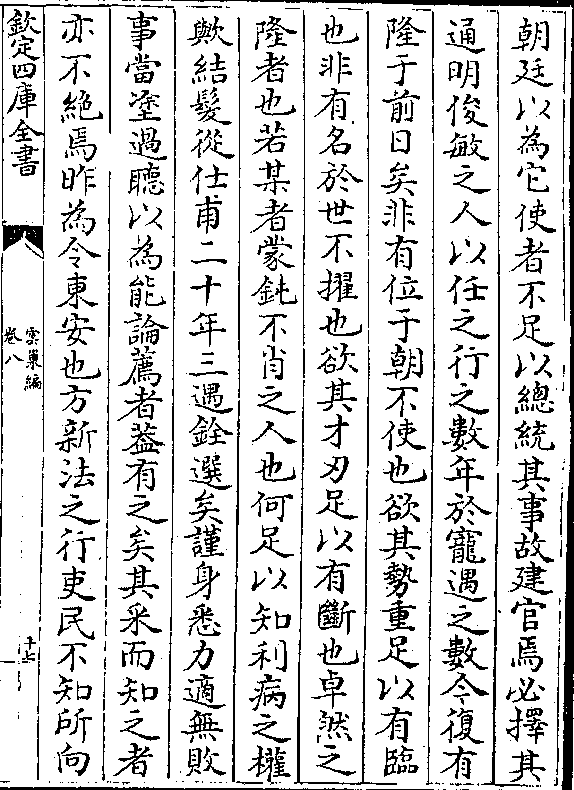 朝廷以為它使者不足以總統其事故建官焉必擇其
通明俊敏之人以任之行之數年於寵遇之數今復有
隆于前日矣非有位于朝不使也欲其勢重足以有臨
也非有名於世不擢也欲其才刃足以有斷也卓然之
隆者也若某者蒙鈍不肖之人也何足以知利病之權
歟結髮從仕甫二十年三遇銓選矣謹身悉力適無敗
事當塗過聽以為能論薦者葢有之矣其采而知之者
亦不絕焉昨為令東安也方新法之行吏民不知所向
欽定四庫全書
雲巢編
卷八